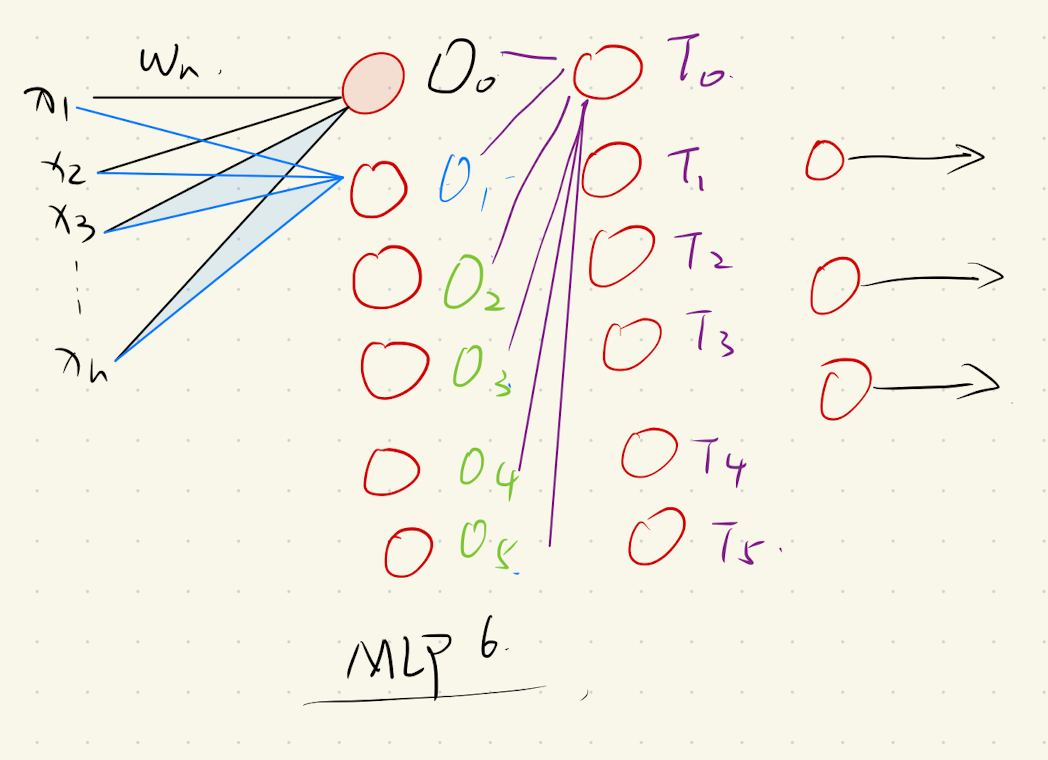 Wn.
x1
x2
x3
xn
O0
O1
O2
O3
O4
O5
T0
T1
T2
T3
T4
T5
MLP 6.